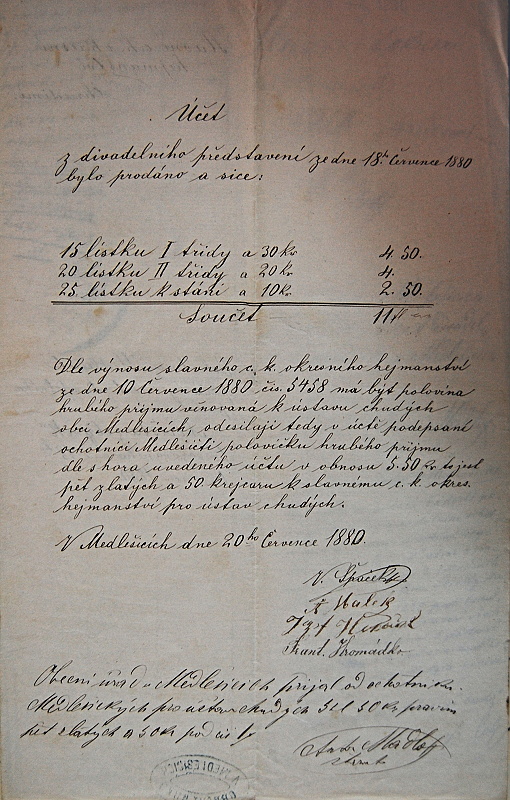 Účet
z divadelního představení ze dne 18ho Července 1880
bylo prodáno a sice:
15 lístku I třídy a 30 kr 4. 50.
20 lístku II třídy a 20 kr. 4.
25 lístku k stání a 10 kr 2. 50.
Součet 11
Dle výnosu slavného c. k. okresního hejmanství
ze dne 10 Července 1880 čís. 5458 má být polovina
hrubého příjmu věnovaná k ústavu chudých
obci Medlešicích, odesílají tedy v úctě podepsané
ochotníci Medlešičtí polovičku hrubého příjmu
dle shora uvedeného účtu v obnosu 5.50 kr to jest
pět zlatých a 50 krejcaru k slavnému c. k. okres.
hejmanství pro ústav chudých.
V Medlešicích dne 20ho Července 1880.
V. Špaček
Hulek
Josef
Frant. Hromádko
Obecní úřad v Medlešicích přijal od ochotníku
Medlešických pro ústav chudých 5 zl 50 kr pravím
pět zlatých a 50 kr pod